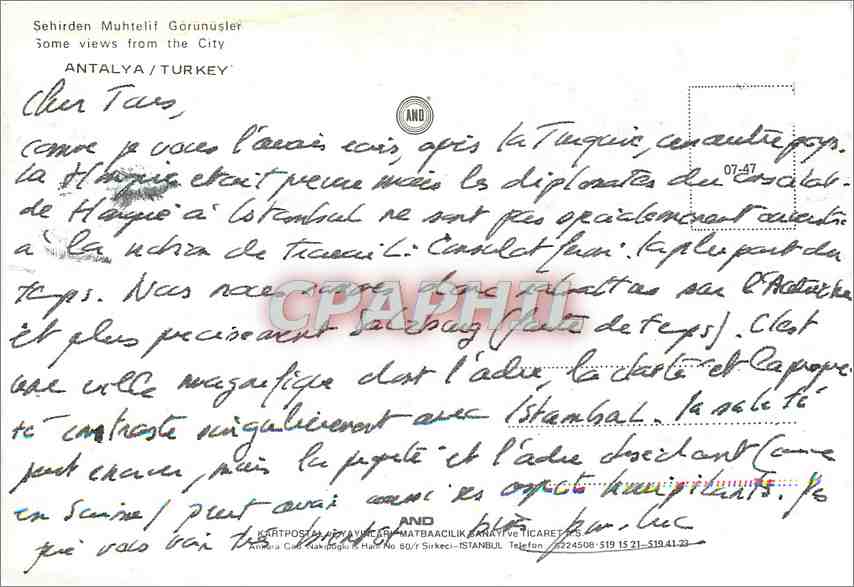 Şehirden Muhtelif Görünüşler
Some views from the City
ANTALYA / TURKEY
AND
07-47
Cher Tous,
comme je vous l'avais écris, après la Turquie, un autre pays.
La Hongrie etait prevue mais les diplomates du consulat
de Hongrie à Istambul ne sont pas specialement
à la notion de travail : Consulat fermé la plupart du
temps. Nous nous sommes donc rabattus sur l'Autriche
et plus precisement Salzburg (faute de temps). C'est
une ville magnifique dont l'ordre, la clarté et la propre-
té contraste singulièrement avec Istambul. La saleté
peut enerver, mais la propreté et l'ordre (comme
en Suisse) peut avoir aussi ses aspects
que vous bientôt
CPAPHIL
AND
KARTPOSTAL ve YAYINLARI MATBAACILIK SANAYİ ve TİCARET A.Ş.
Ankara Cad. Nakipoğlu İş Hanı No 60/7 Sirkeci-İSTANBUL Telefon 5224508-519 15 21-519 41 23